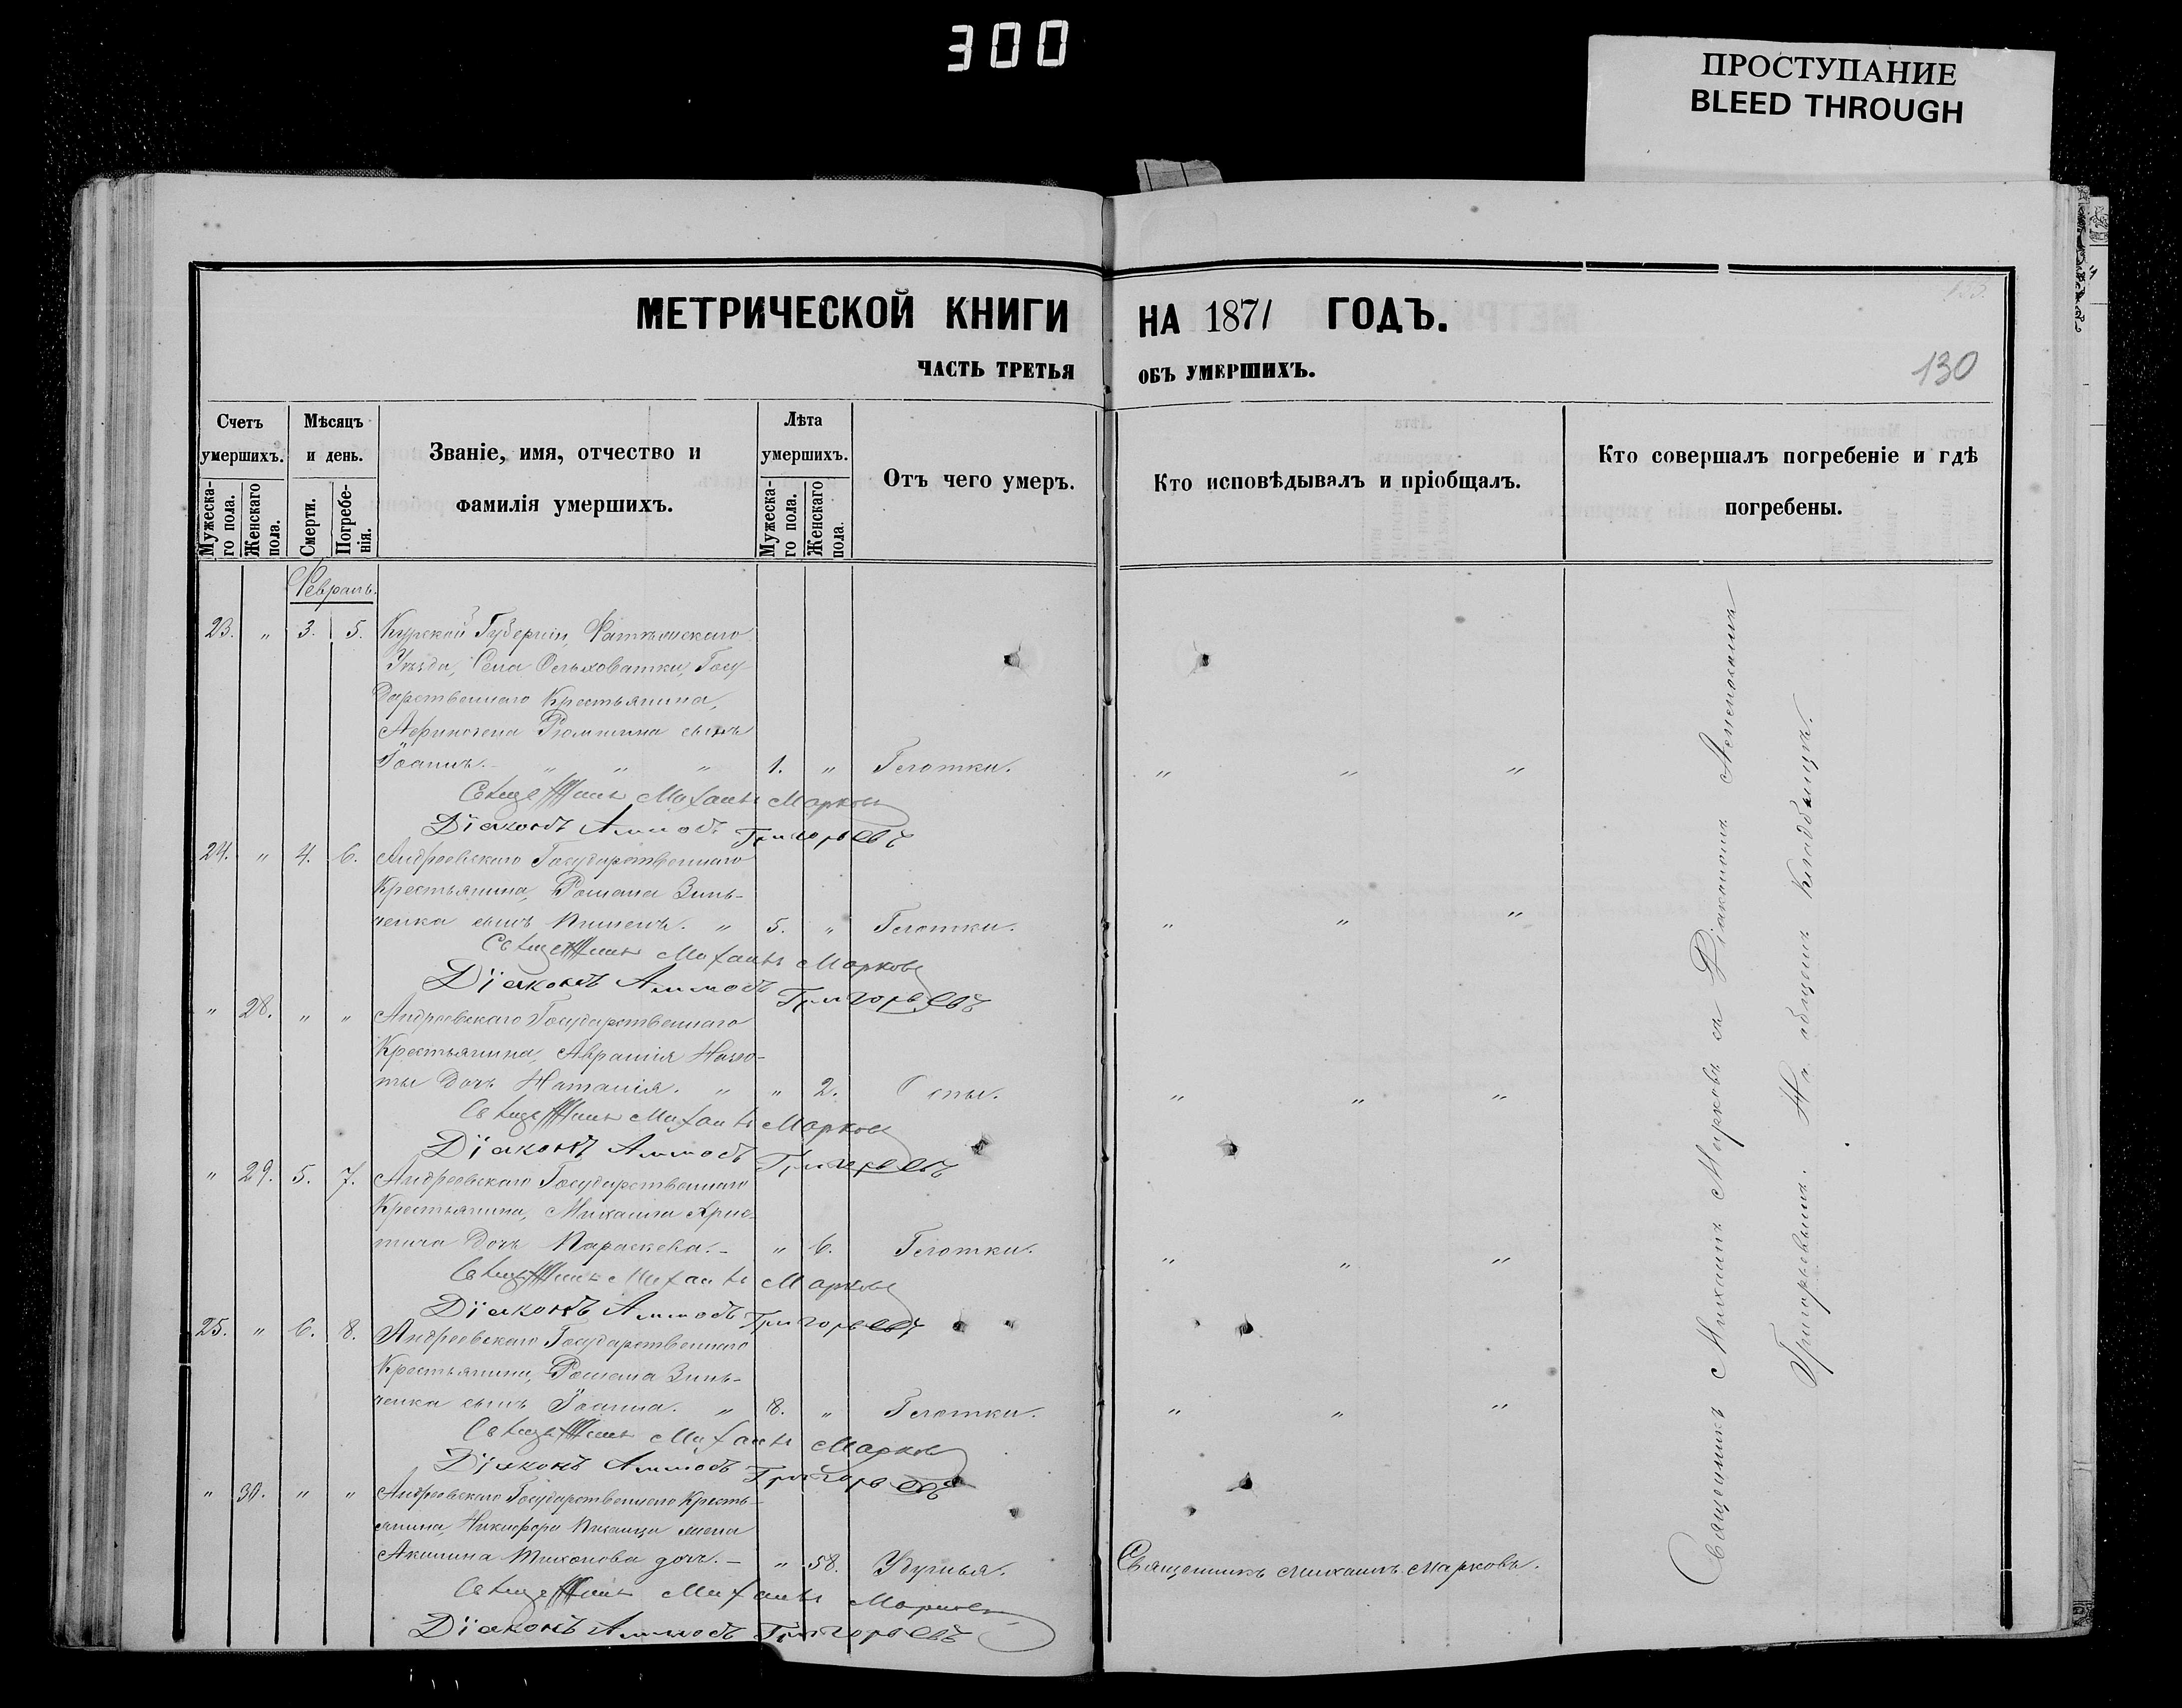 300
ПРОСТУПАНИЕ
BLEED THROUGH
МЕТРИЧЕСКОЙ КНИГИ НА 1871 ГОДЪ.
ЧАСТЬ ТРЕТЬЯ ОБЪ УМЕРШИХЪ.
130
Счетъ умершихъ.
Мужескаго пола.
Женскаго пола.
Мѣсяцъ и день.
Смерти.
Погребенія.
Званіе, имя, отчество и
фамилія умершихъ.
Лѣта умершихъ.
Мужескаго пола.
Женскаго пола.
Отъ чего умеръ.
Кто исповѣдывалъ и пріобщалъ.
Кто совершалъ погребеніе и гдѣ
погребены.
Февраль.
23. " 3. 5. Курской Губерніи, Фатежскаго
Уѣзда, Села Ольховатки, Госу-
дарственнаго Крестьянина,
сынъ
Іоаннъ. " " " 1. " Глотки. " " "
Священникъ Михаилъ Марковъ
Діаконъ Аммосъ Григорьевъ
24. " 4. 6. Андреевскаго Государственнаго
Крестьянина, Романа Зинь-
ченка сынъ Пименъ. " 5. " Глотки. " " "
Священникъ Михаилъ Марковъ
Діаконъ Аммосъ Григорьевъ
" 28. " " Андреевскаго Государственнаго
Крестьянина,
дочь Наталія. " " 2. Оспы. " " "
Священникъ Михаилъ Марковъ
Діаконъ Аммосъ Григорьевъ
" 29. 5. 7. Андреевскаго Государственнаго
Крестьянина, Михаила
дочь Параскева. - " 6. Глотки. " " "
Священникъ Михаилъ Марковъ
Діаконъ Аммосъ Григорьевъ
25. " 6. 8. Андреевскаго Государственнаго
Крестьянина, Романа Зинь-
ченка сынъ Іоанна. " 8. " Глотки. " " "
Священникъ Михаилъ Марковъ
Діаконъ Аммосъ Григорьевъ
" 30. " " Андреевскаго Государственнаго Кресть-
янина, Никифора жена
Акилина Тихонова дочь. - " 58. Удушья. Священникъ Михаилъ Марковъ.
Священникъ Михаилъ Марковъ
Діаконъ Аммосъ Григорьевъ
Священникъ Михаилъ Марковъ съ Діакономъ
Григорьевымъ. На общемъ кладбищѣ.